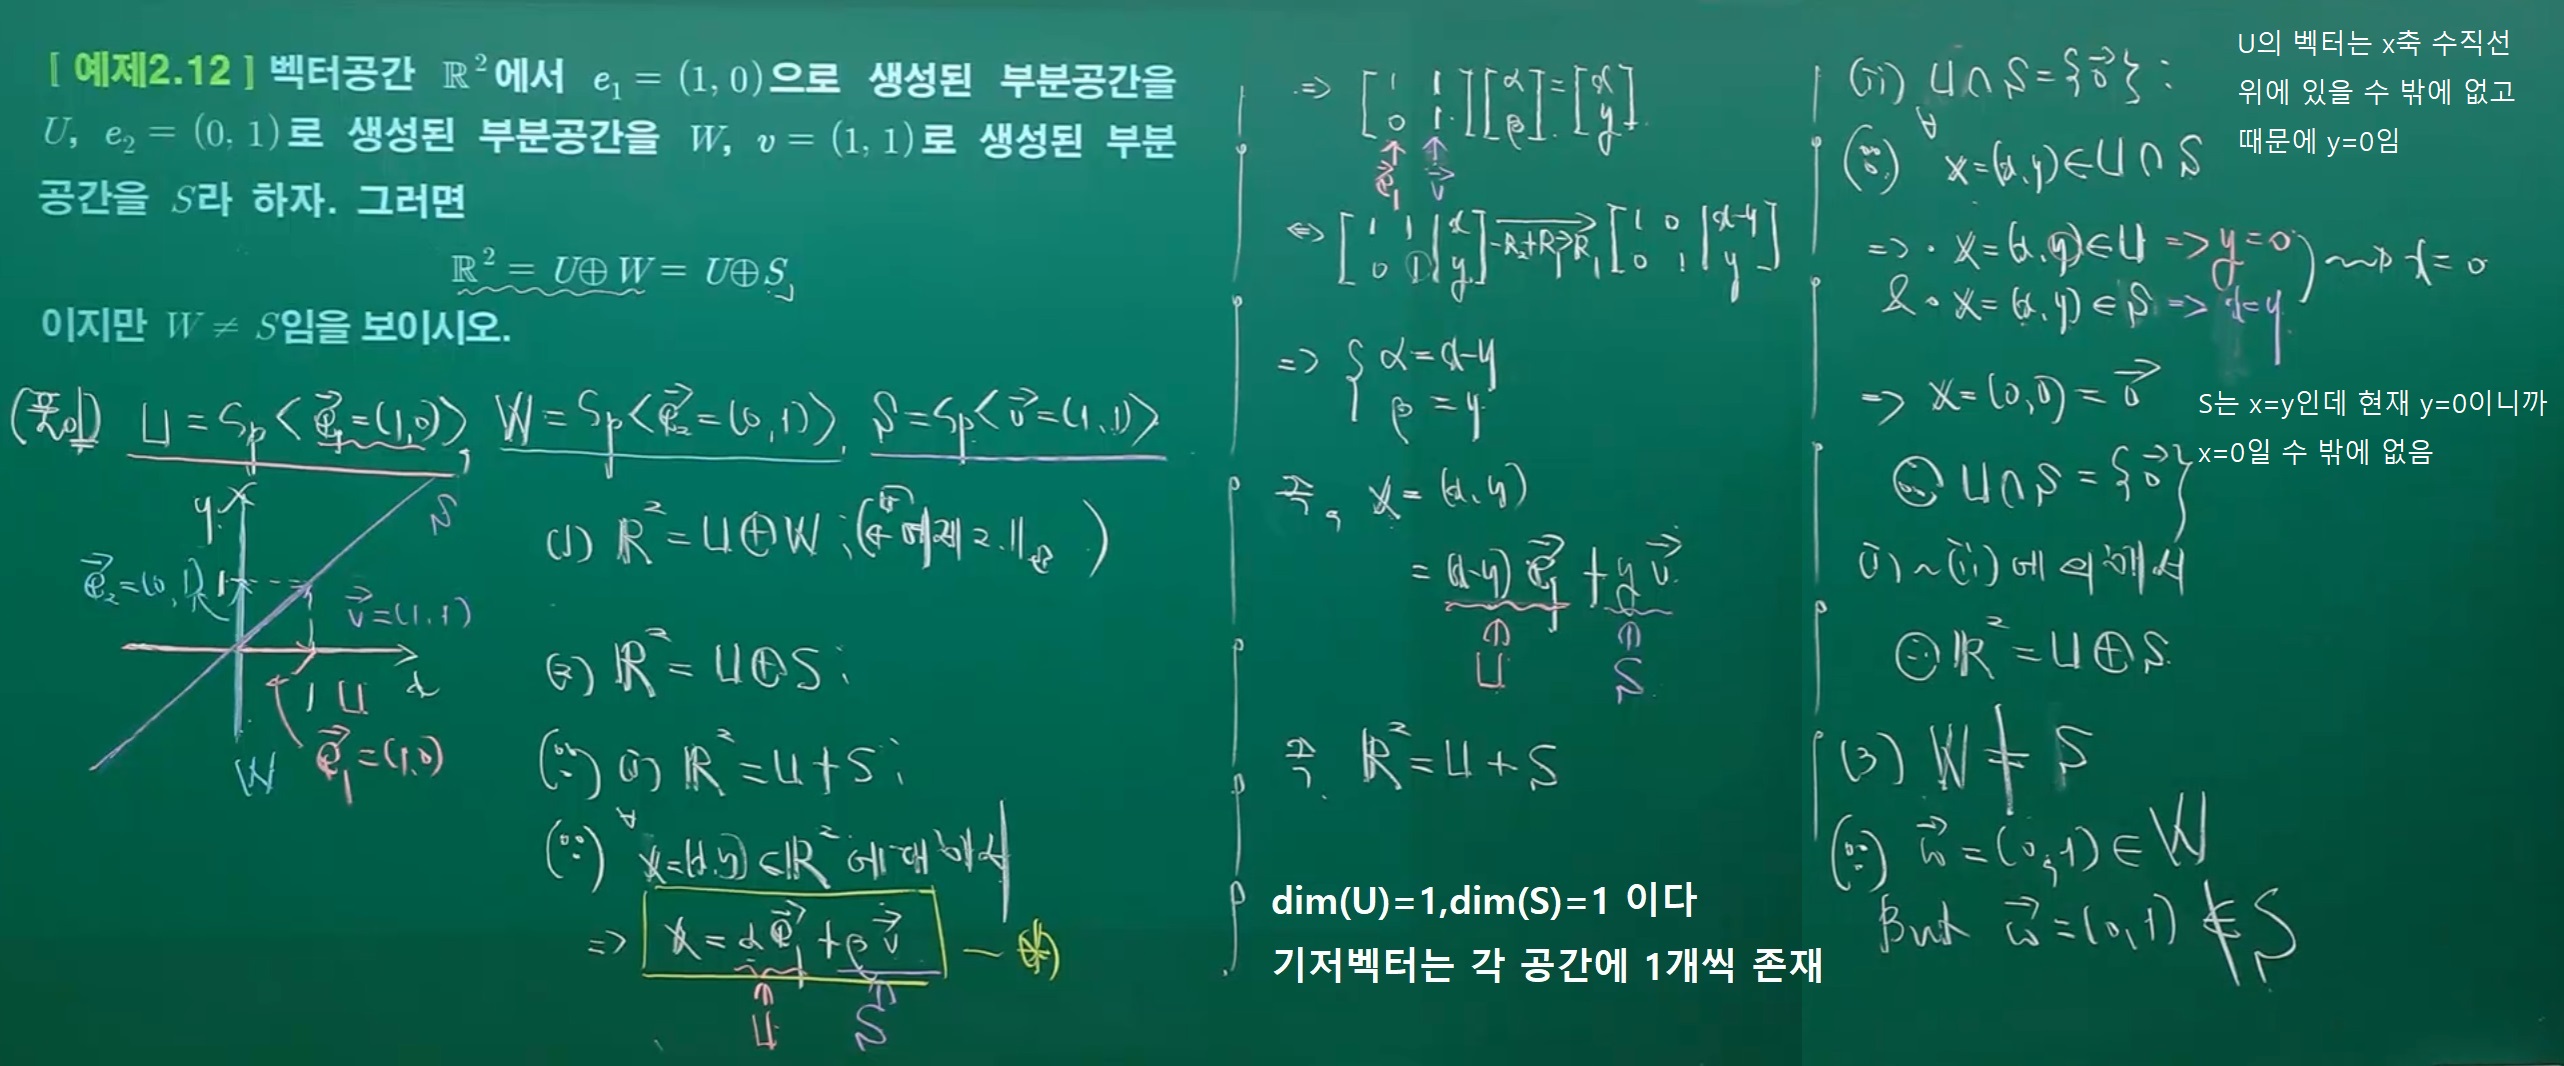 [ 예제2.12 ] 벡터공간 ℝ²에서 e₁ = (1, 0)으로 생성된 부분공간을
U, e₂ = (0, 1)로 생성된 부분공간을 W, v = (1, 1)로 생성된 부분
공간을 S라 하자. 그러면
ℝ² = U⊕W = U⊕S
이지만 W ≠ S임을 보이시오.
(풀이) U = Sp<e⃗₁=(1,0)>, W = Sp<e⃗₂=(0,1)>, S = Sp<v⃗=(1,1)>
y
S
e⃗₂=(0,1)
1
v⃗=(1,1)
1 U x
W
e⃗₁=(1,0)
(1) ℝ² = U⊕W ; (← 예제 2.11 )
(2) ℝ² = U⊕S ;
(∵) (i) ℝ² = U+S ;
(∵) ∀x=(x,y)∈ℝ²에 대해서
=> x = αe⃗₁ + βv⃗ — (*)
U S
=> [1 1; 0 1][α; β] = [x; y]
e⃗₁ v⃗
<=> [1 1 | x; 0 1 | y] -R₂+R₁→R₁ [1 0 | x-y; 0 1 | y]
=> { α = x-y
β = y
즉, x = (x,y)
= (x-y)e⃗₁ + yv⃗
U S
즉, ℝ² = U+S
dim(U)=1,dim(S)=1 이다
기저벡터는 각 공간에 1개씩 존재
(ii) U∩S = {0⃗} ;
(∵) ∀x=(x,y)∈U∩S
=> · x=(x,y)∈U => y=0
& · x=(x,y)∈S => x=y
⇝ x=0
=> x=(0,0)=0⃗
∴ U∩S = {0⃗}
i)~(ii)에 의해서
∴ ℝ² = U⊕S
(3) W ≠ S
(∵) w⃗=(0,1)∈W
But w⃗=(0,1)∉S
U의 벡터는 x축 수직선
위에 있을 수 밖에 없고
때문에 y=0임
S는 x=y인데 현재 y=0이니까
x=0일 수 밖에 없음